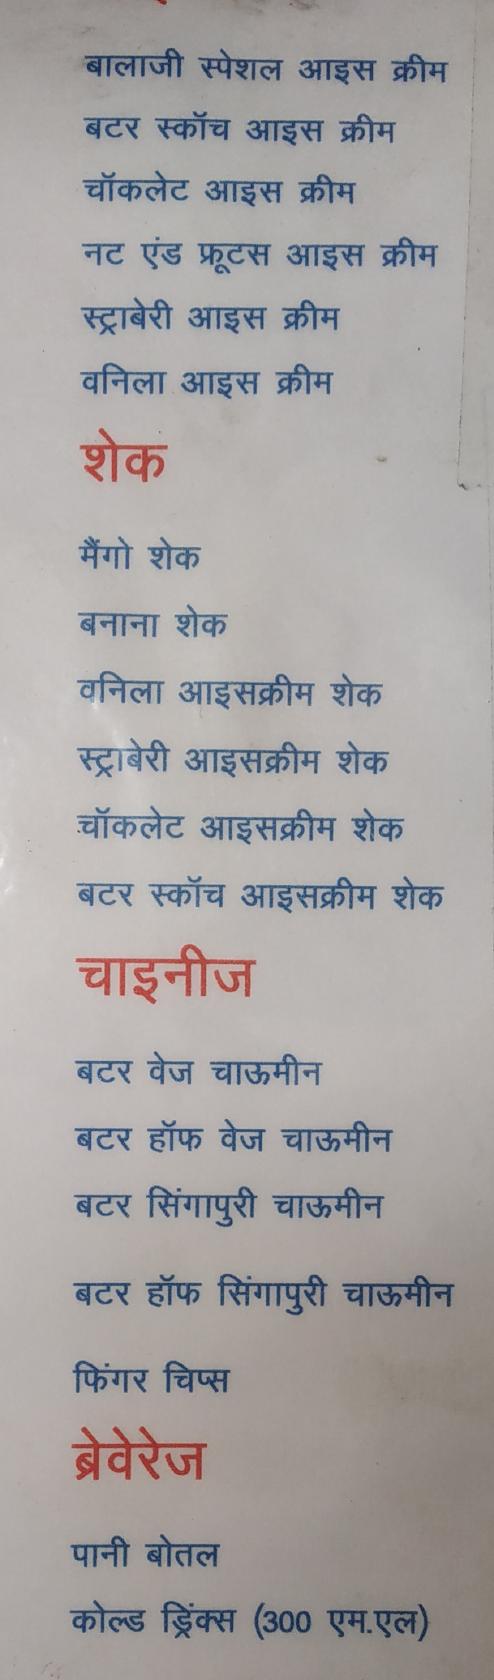 बालाजी स्पेशल आइस क्रीम
बटर स्कॉच आइस क्रीम
चॉकलेट आइस क्रीम
नट एंड फ्रूटस आइस क्रीम
स्ट्राबेरी आइस क्रीम
वनिला आइस क्रीम
शेक
मैंगो शेक
बनाना शेक
वनिला आइसक्रीम शेक
स्ट्राबेरी आइसक्रीम शेक
चॉकलेट आइसक्रीम शेक
बटर स्कॉच आइसक्रीम शेक
चाइनीज
बटर वेज चाऊमीन
बटर हॉफ वेज चाऊमीन
बटर सिंगापुरी चाऊमीन
बटर हॉफ सिंगापुरी चाऊमीन
फिंगर चिप्स
ब्रेवेरेज
पानी बोतल
कोल्ड ड्रिंक्स (300 एम.एल)